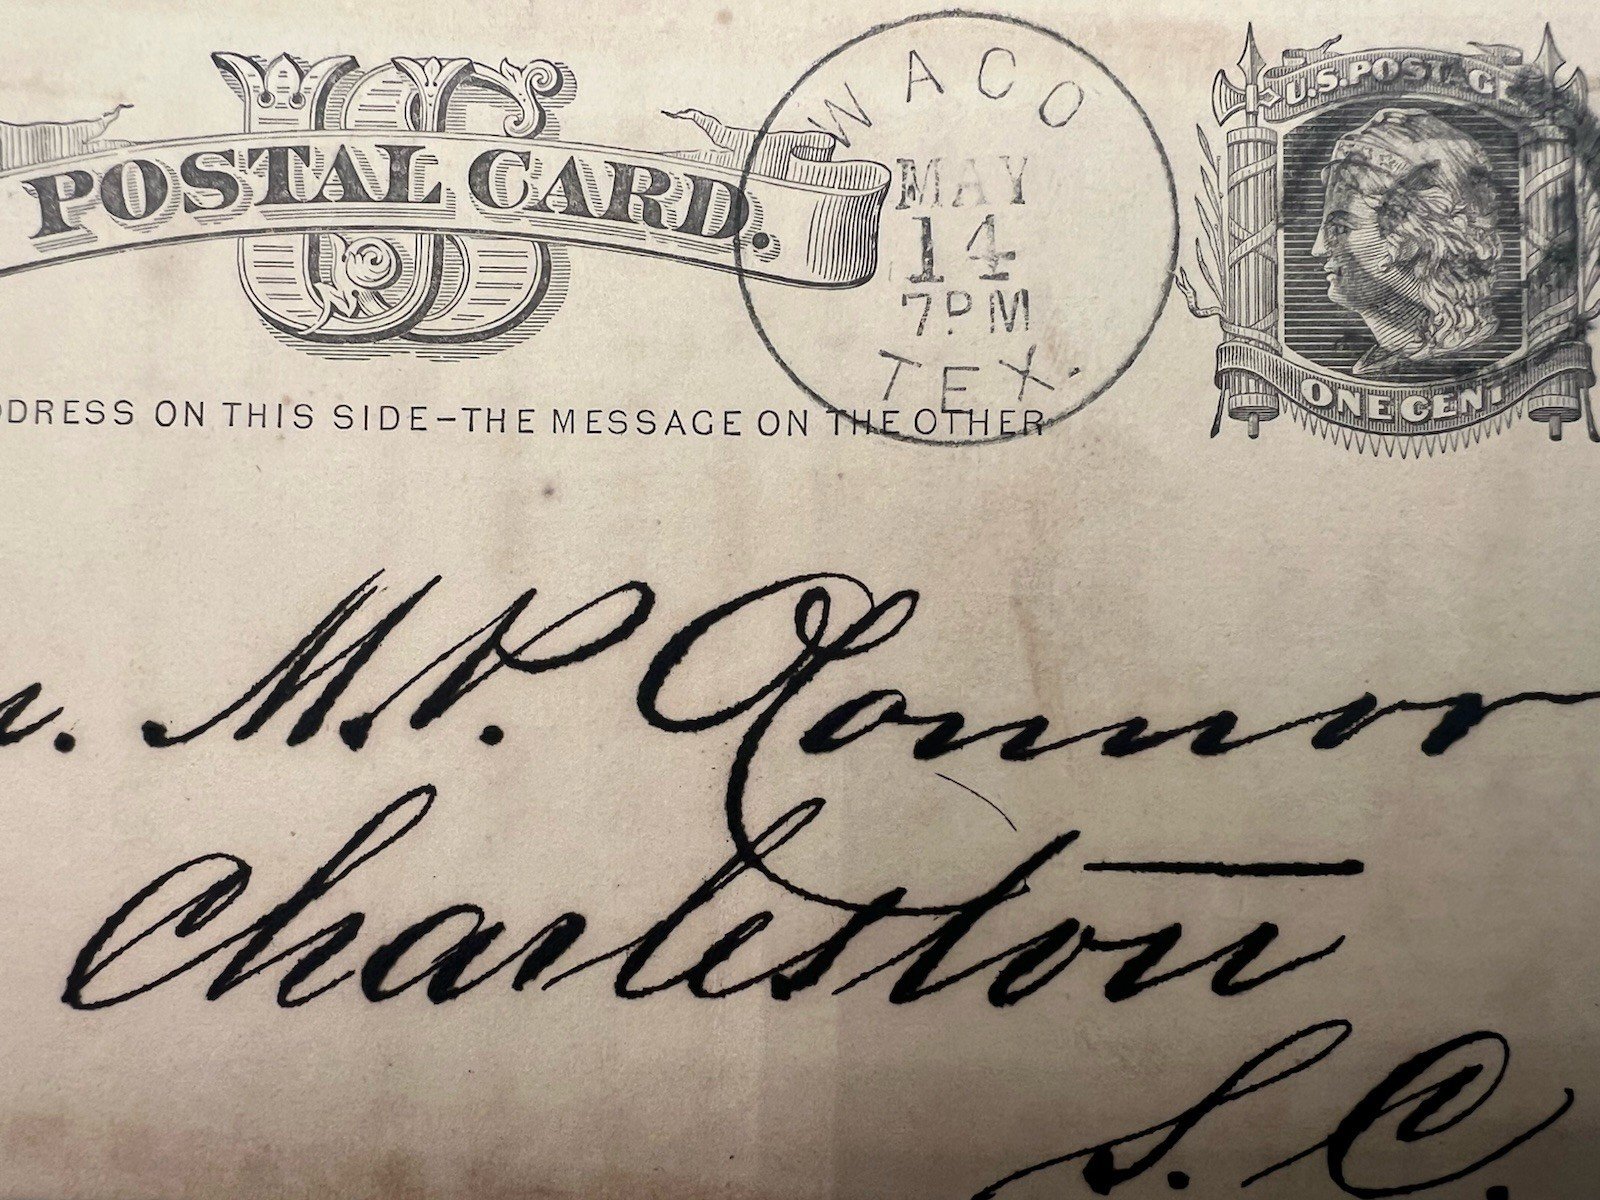 US
POSTAL CARD.
WACO
MAY
14
7PM
TEX.
U.S. POSTAGE
ONE CENT
DDRESS ON THIS SIDE–THE MESSAGE ON THE OTHER
M. P. O'Connor
Charleston
S. C.